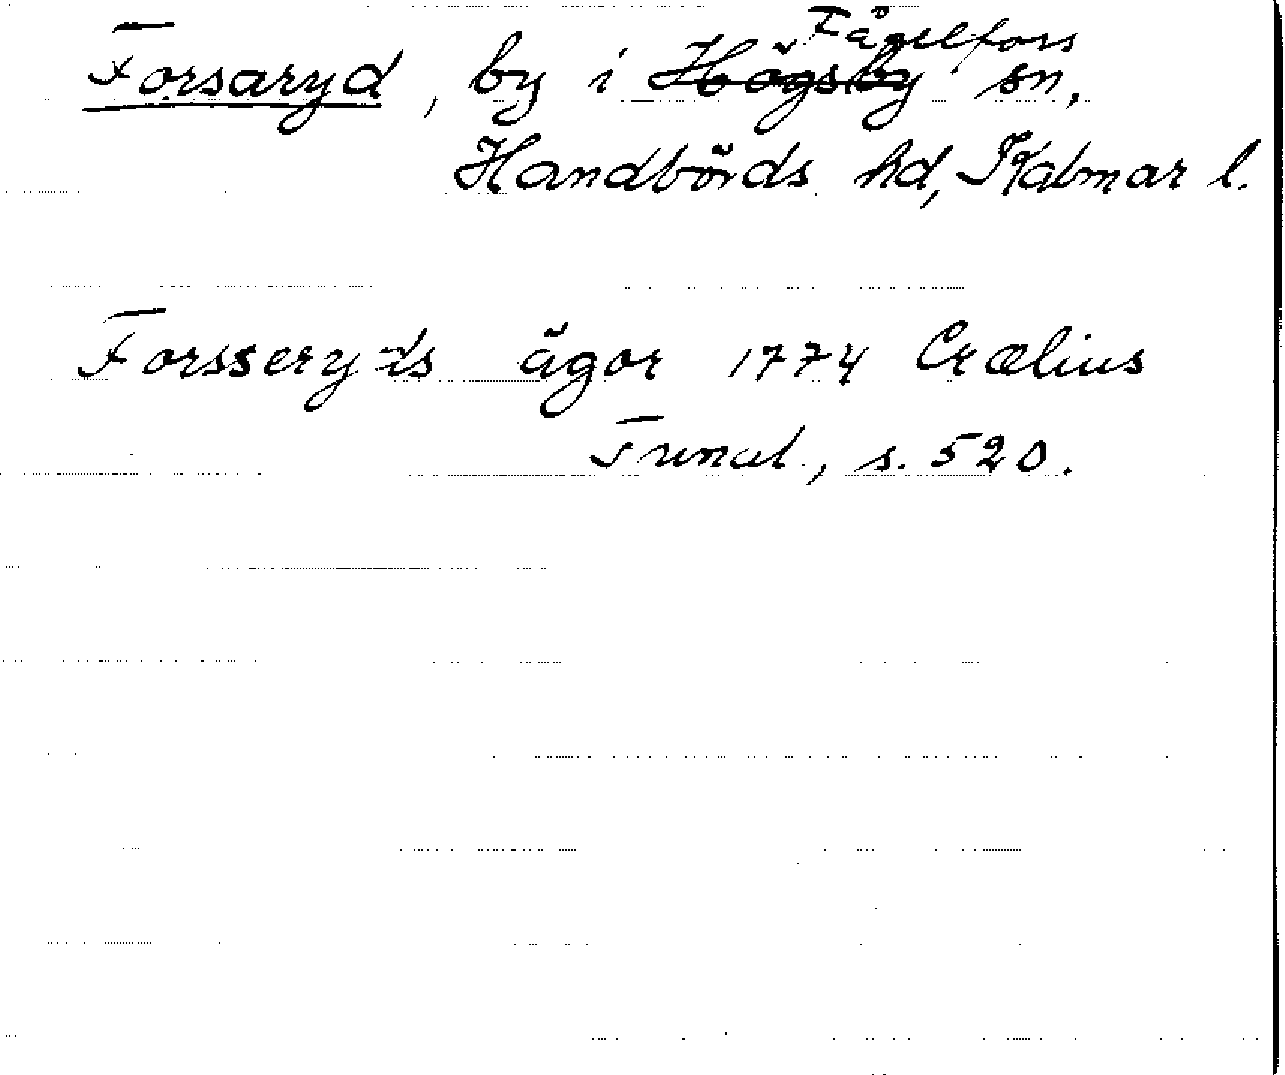 Forsaryd, by i ~~Högsby~~ Fågelfors sn,
Handbörds hd, Kalmar l.
Forsseryds ägor 1774 Crælius
Tunal., s. 520.